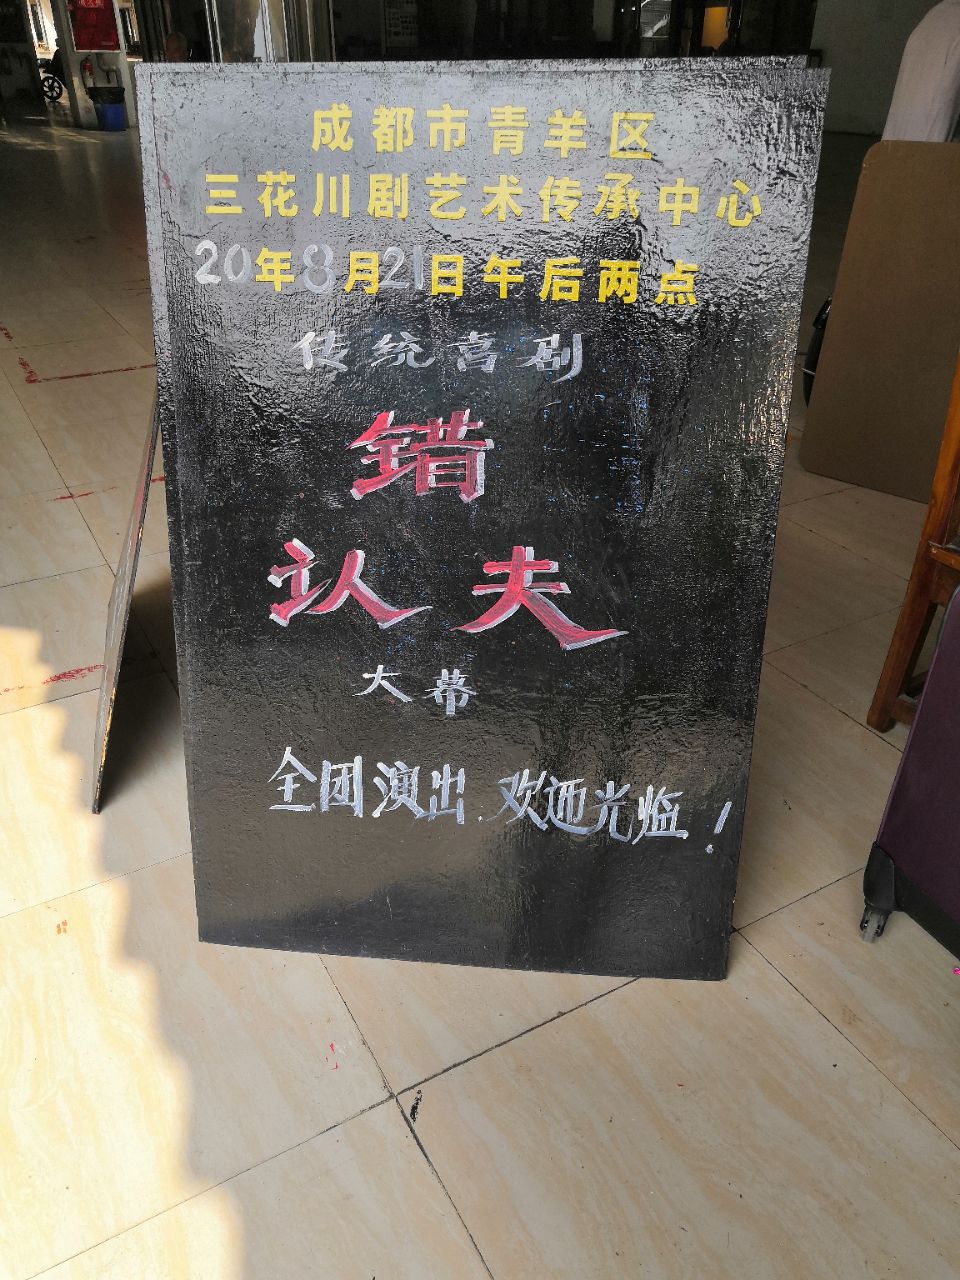 成都市青羊区
三花川剧艺术传承中心
20年8月21日午后两点
传统喜剧
错
认夫
大幕
全团演出.欢迎光临!